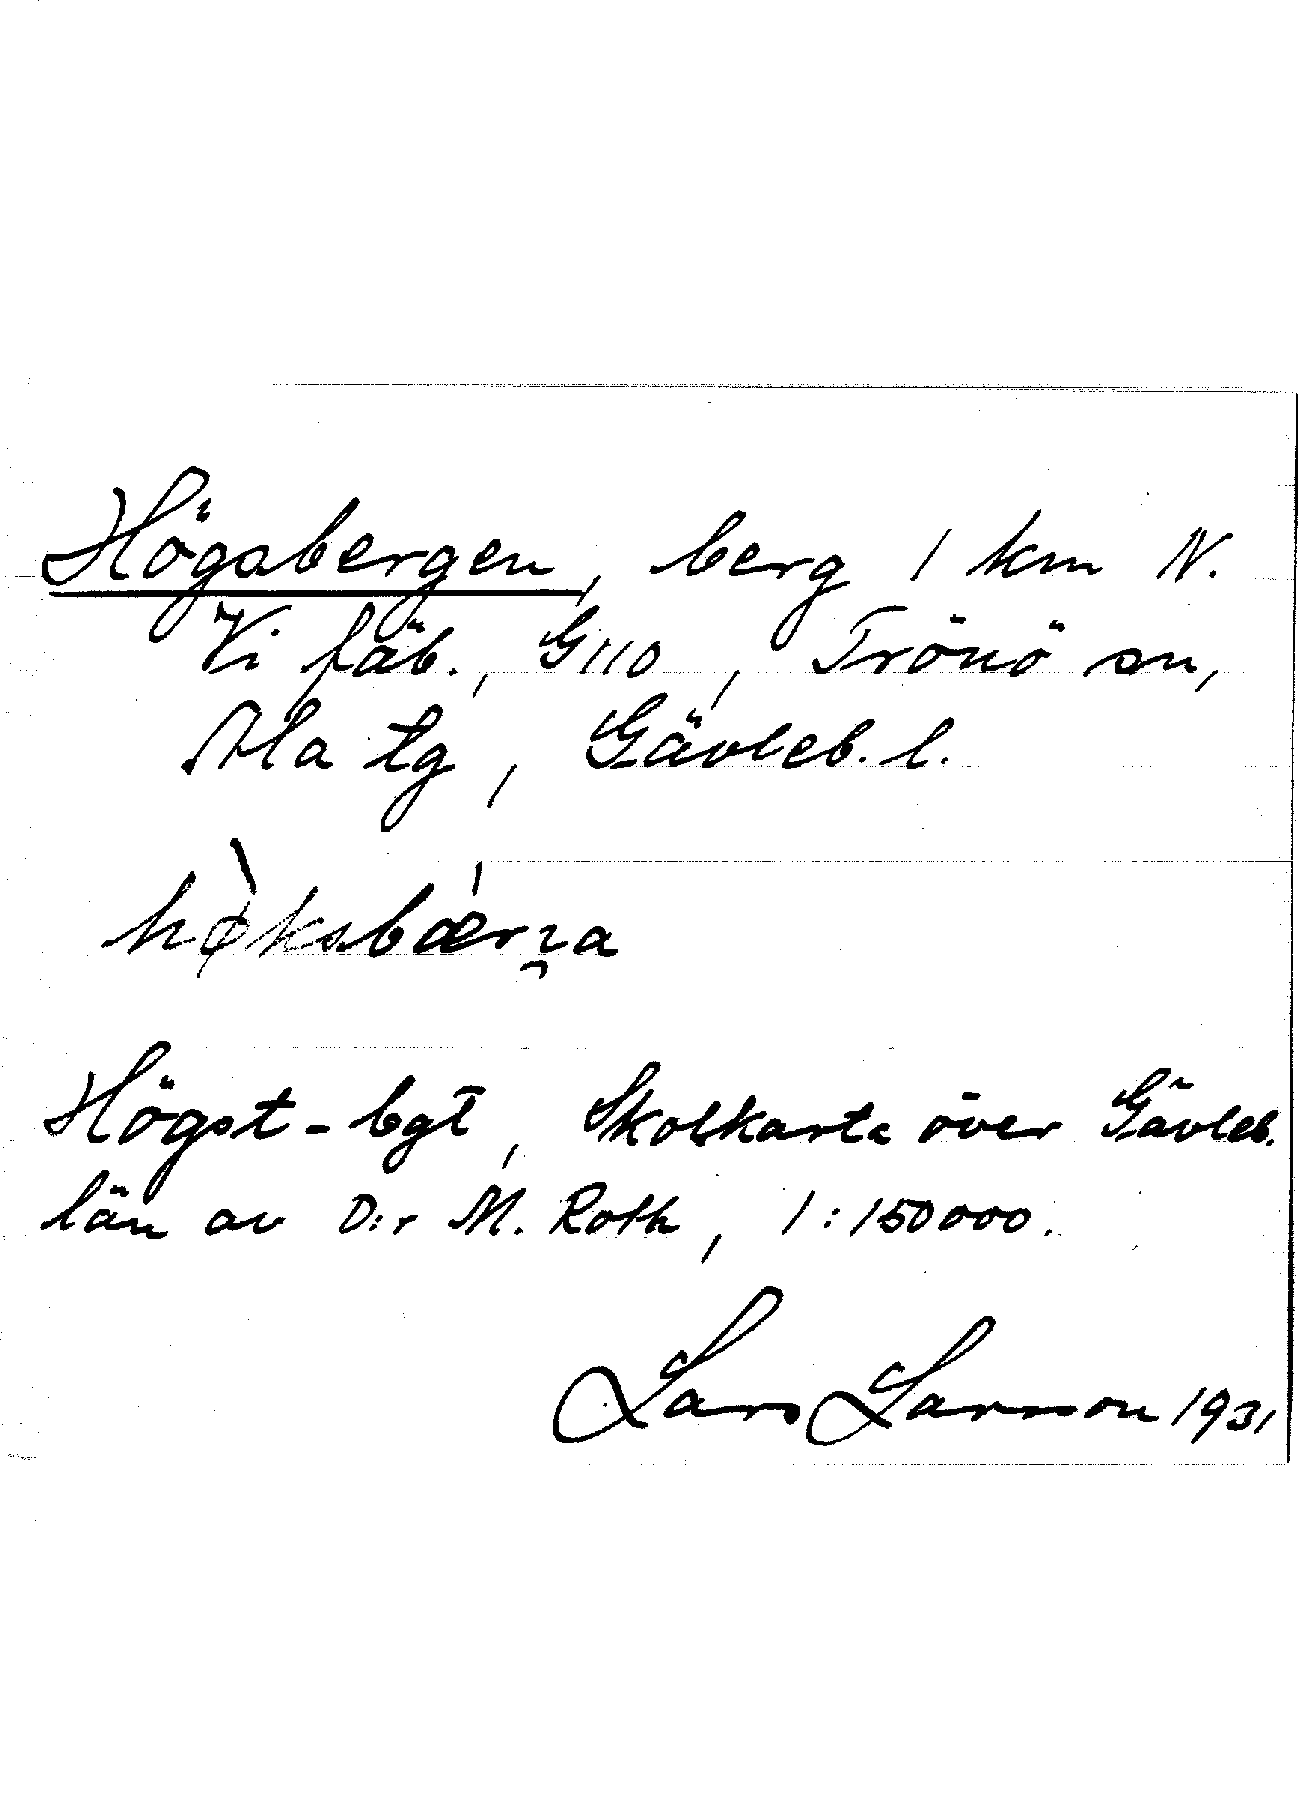 Högsbergen, berg 1 km N.
Vi fäb., G110, Trönö sn,
Ala tg, Gävleb. l.
hø̀ksbǽrɲa
Högst-bgt, Skolkarta över Gävleb.
län av D:r M. Roth, 1:150000.
Lars Larsson 1931